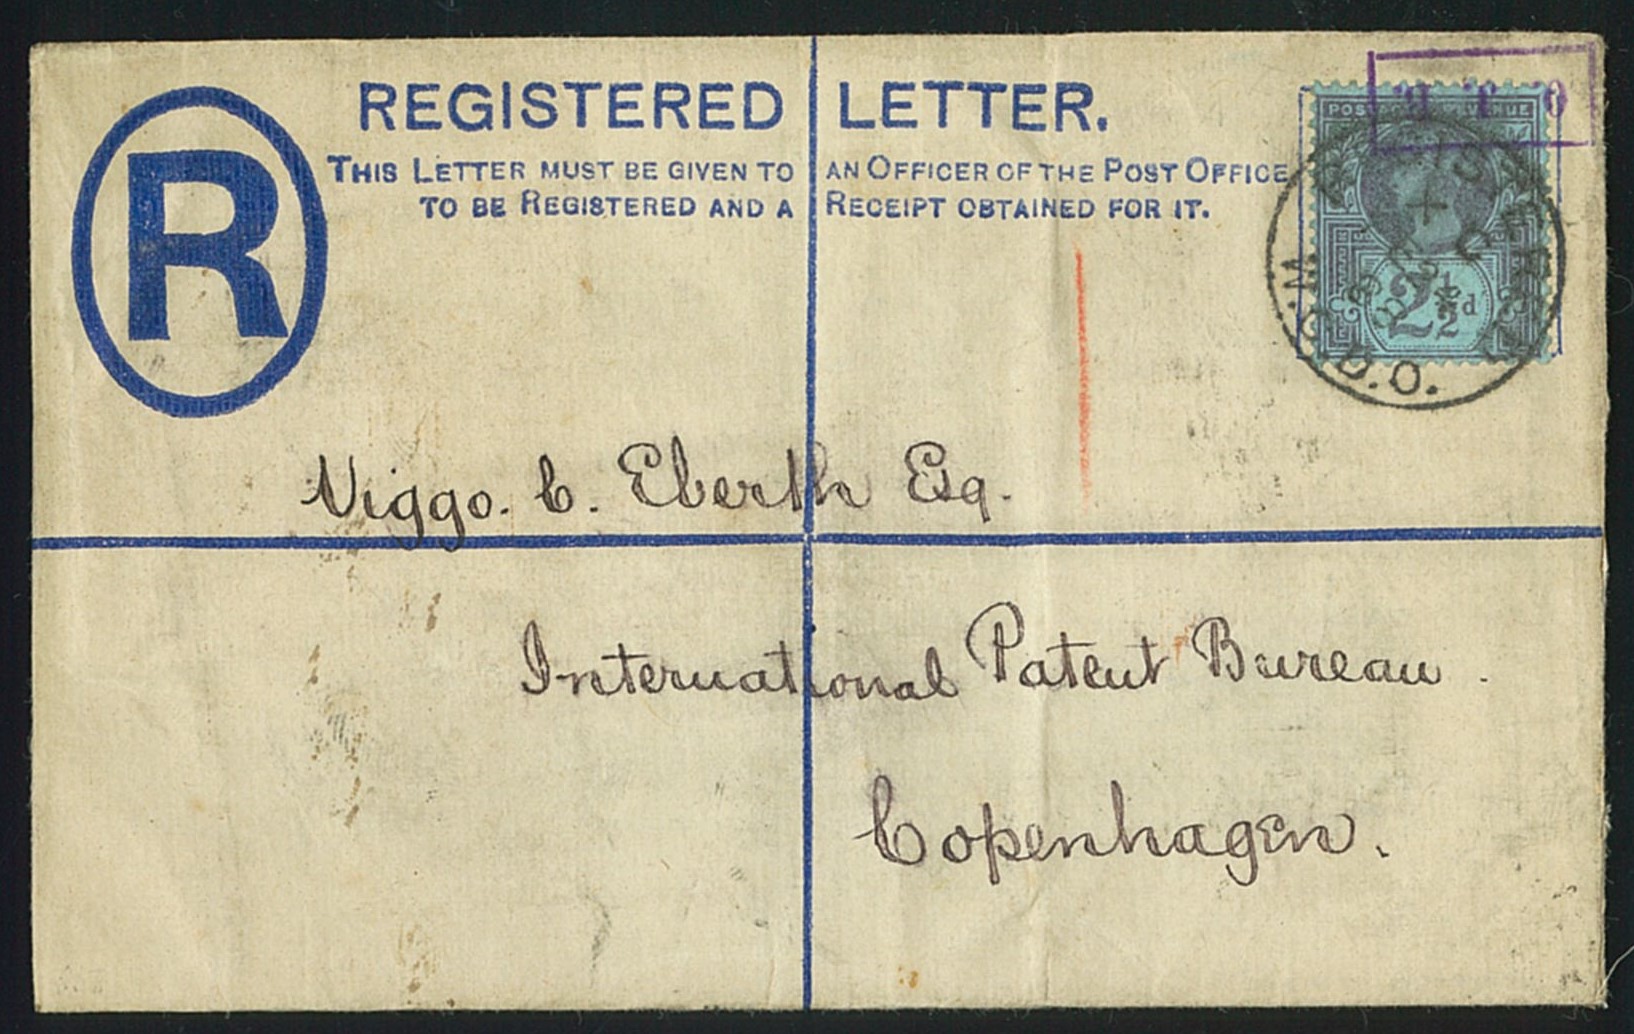 REGISTERED LETTER.
THIS LETTER MUST BE GIVEN TO AN OFFICER OF THE POST OFFICE
TO BE REGISTERED AND A RECEIPT OBTAINED FOR IT.
R
POSTAGE & REVENUE
2½d
REGISTERED
W.C.D.O.
Viggo. C. Eberth Esq.
International Patent Bureau.
Copenhagen.